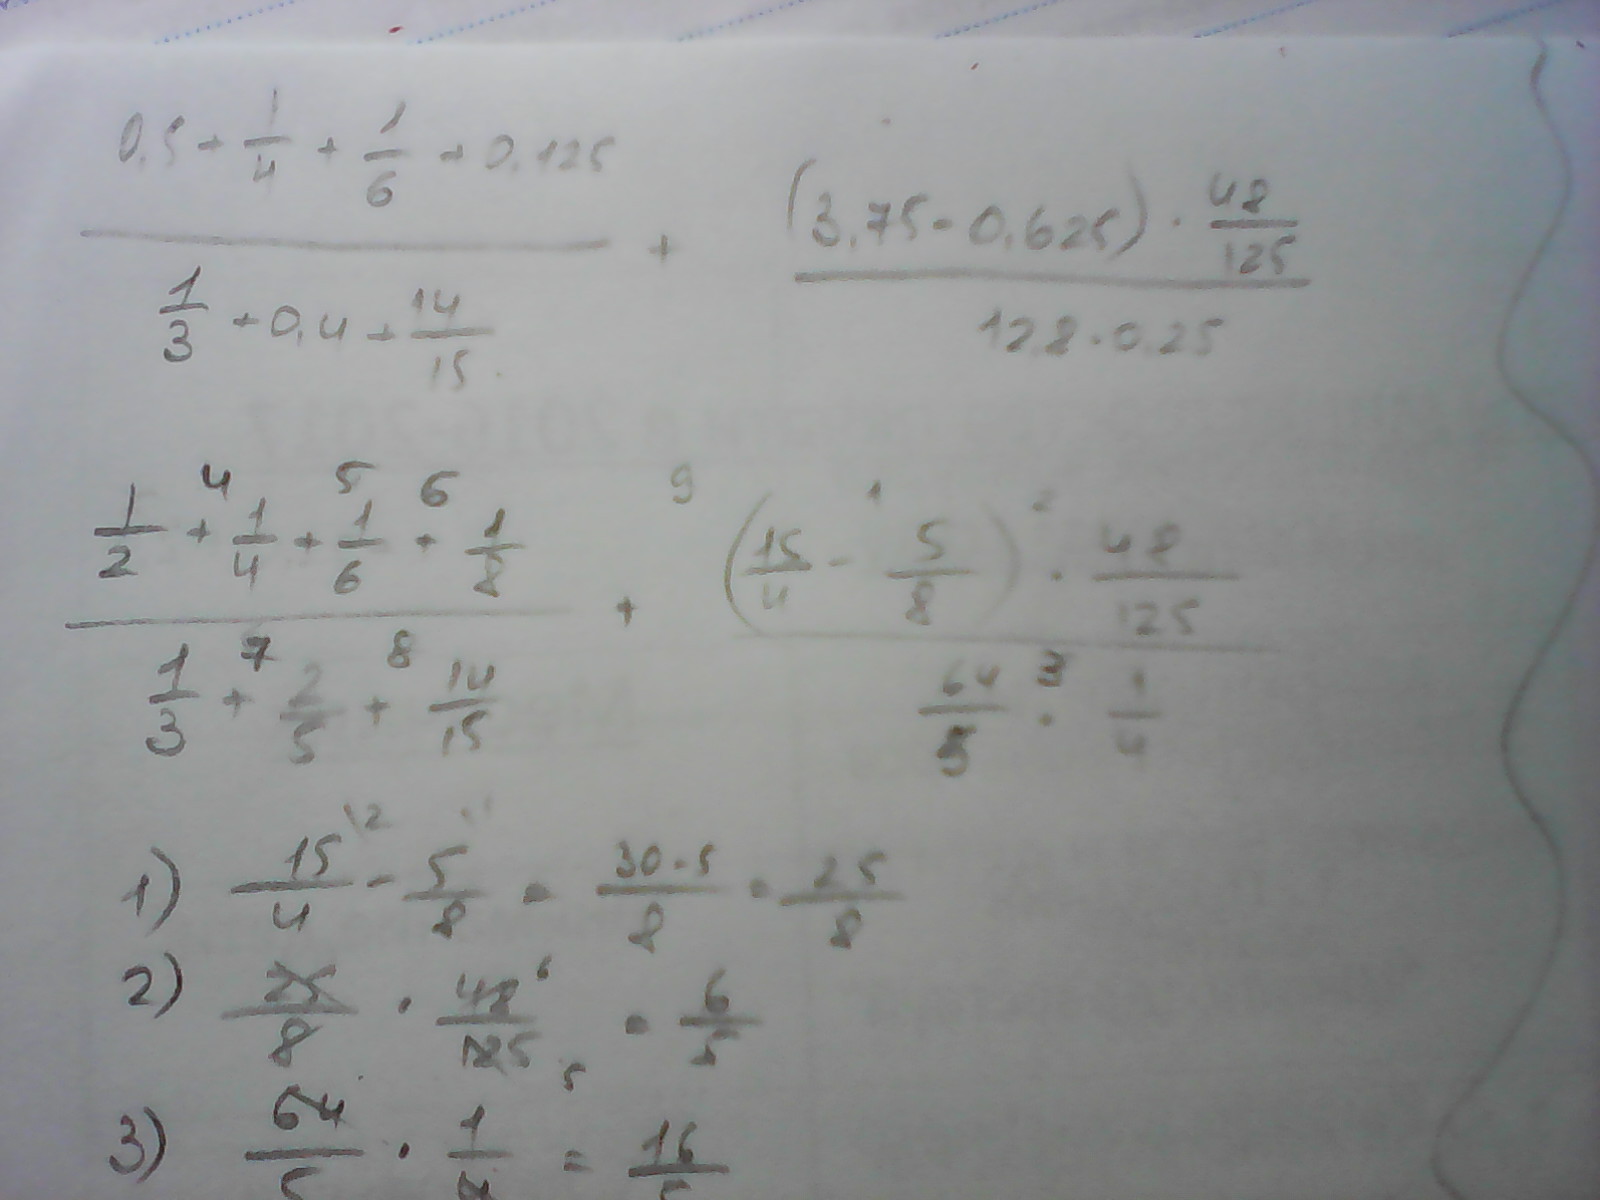 0,5 + 1/4 + 1/6 + 0,125 / 1/3 + 0,4 + 14/15 + (3,75 - 0,625) · 48/125 / 12,8 · 0,25
1/2 +⁴ 1/4 +⁵ 1/6 +⁶ 1/8 / 1/3 +⁷ 2/5 +⁸ 14/15 +⁹ (15/4 -¹ 5/8) ·² 48/125 / 64/5 ·³ 1/4
1) 15/4 \2 - 5/8 \1 = 30-5/8 = 25/8
2) 25/8 · 48/125 6 5 = 6/5
3) 64/5 · 1/4 = 16/5